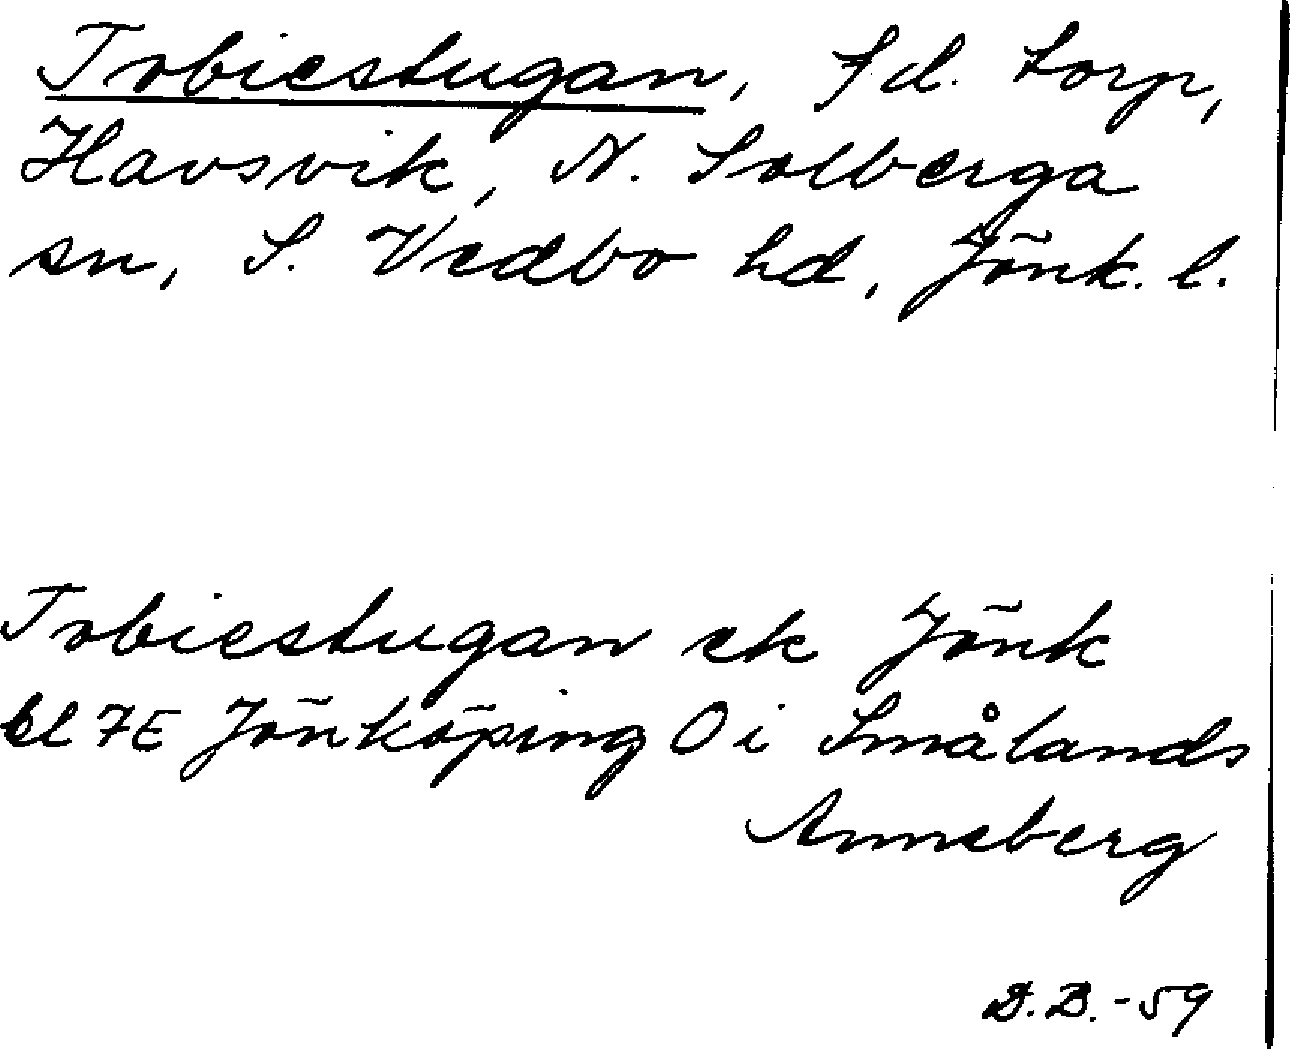 Tobiestugan, Fd. torp,
Havsvik, N. Solberga
sn, S. Vedbo hd, Jönk. l.
Tobiestugan ek Jönk
bl 7E Jönköping O i Smålands
Anneberg
D.B.-59